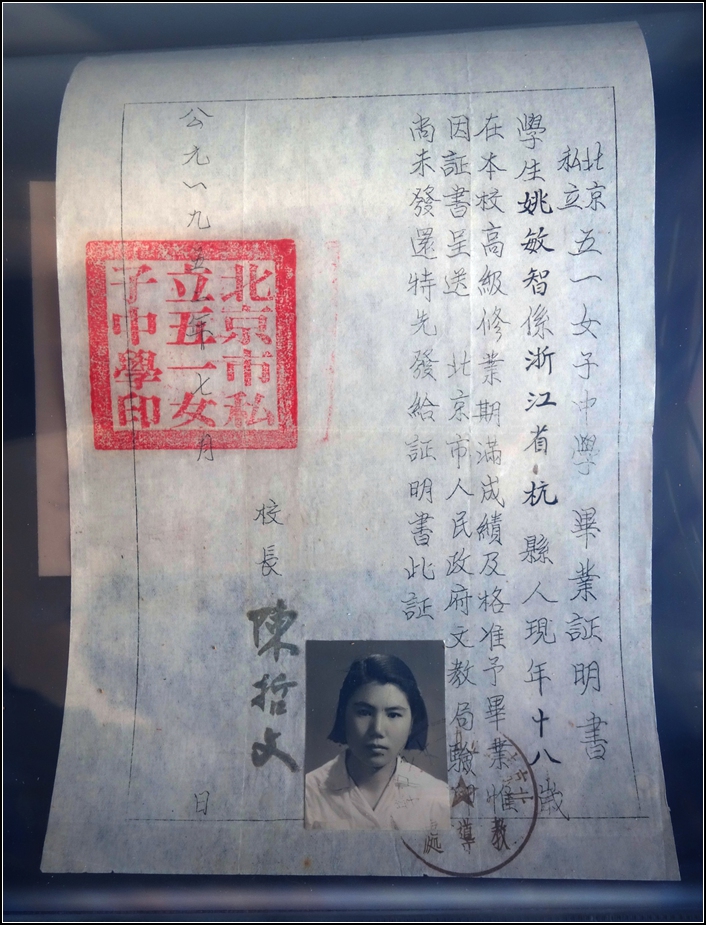 北京私立五一女子中學畢業証明書
學生姚敏智係浙江省杭縣人現年十八歲
在本校高級修業期滿成績及格准予畢業惟
因証書呈送 北京市人民政府文教局驗印
尚未發還特先發給証明書此証
校長 陳哲文
公元一九五 年七月 日
北京市私
立五一女
子中學印
教導處